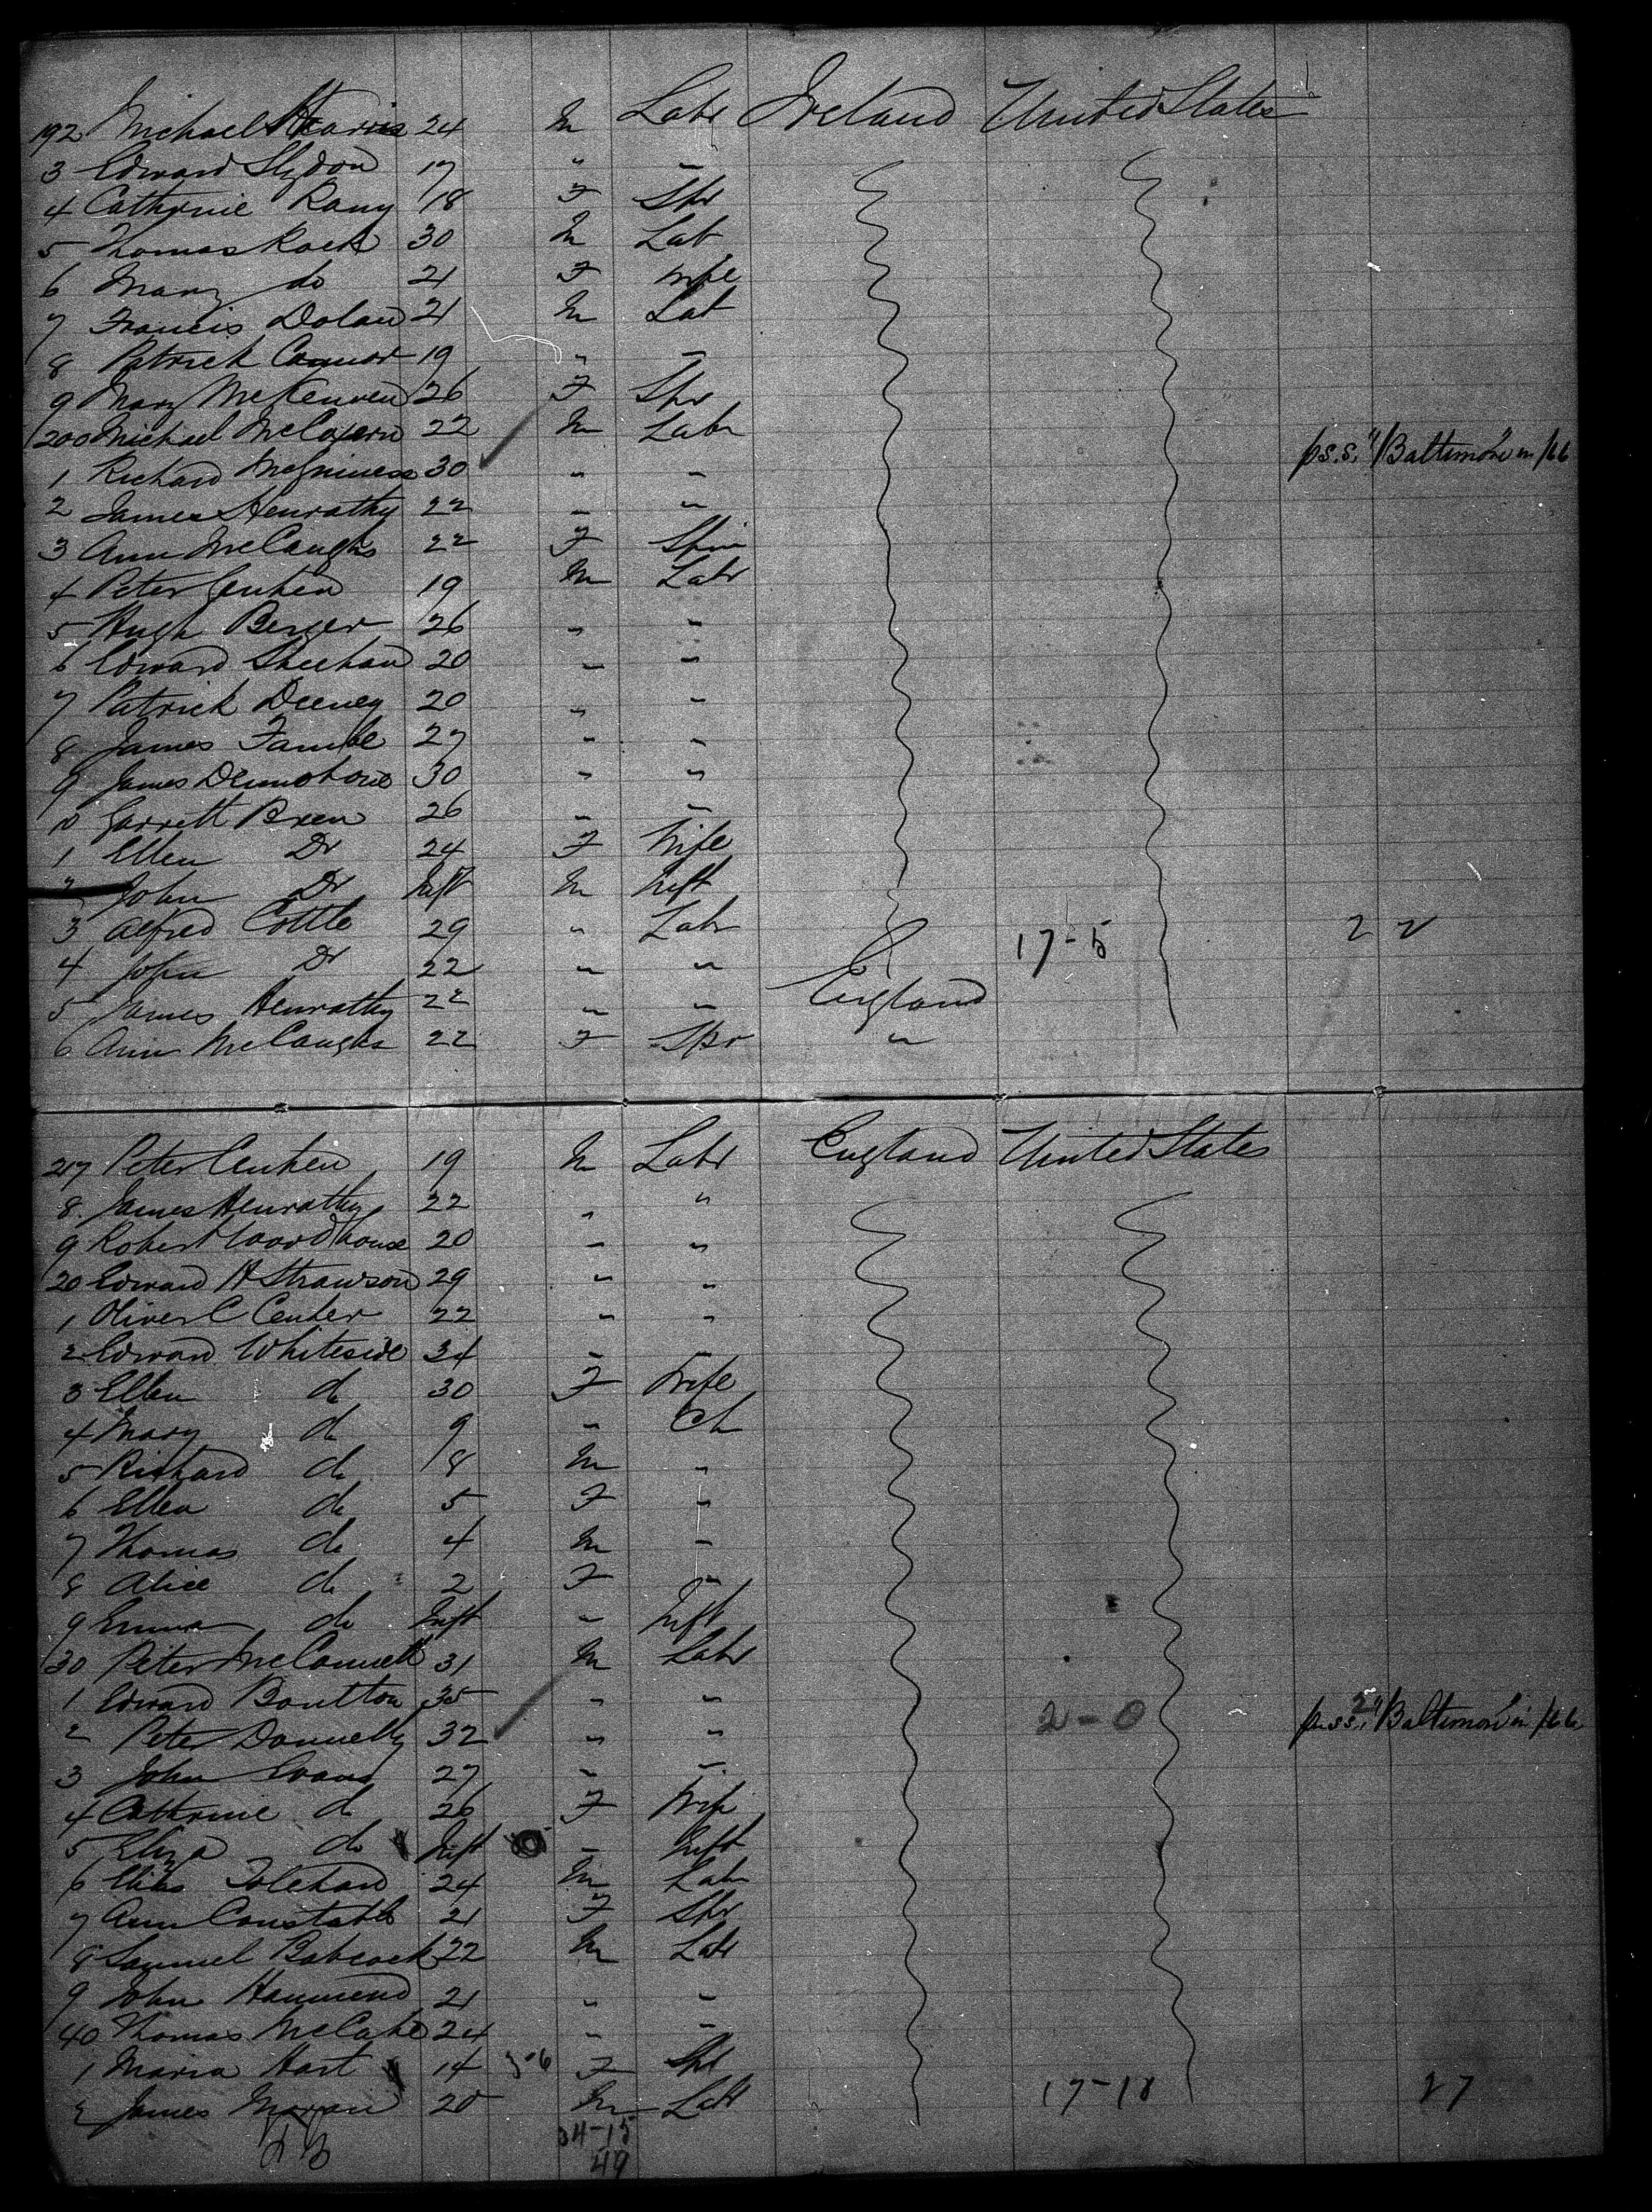 192 Michael 24 M Labr Ireland United States
3 Edward 17 " "
4 Cathrine Rany 18 F Spr
5 Thomas Rock 30 M Lab
6 Mary do 21 F wife
7 Francis Dolan 21 M Lab
8 Patrick Connor 19 " "
9 Mary 26 F Spr
200 Michael McGovern 22 M Labr
1 Richard McGuiness 30 " " p s.s. "Baltimore" in /66
2 James Henrathy 22 " "
3 Ann McCaughs 22 F Spin
4 Peter 19 M Labr
5 Hugh Berger 26 " "
6 Edward Sheehan 20 " "
7 Patrick Deeney 20 " "
8 James 27 " "
9 James 30 " "
10 Garrett Breen 26 " "
1 Ellen Do 24 F Wife
2 John Do Inft M Inft
3 Alfred Cottle 29 " Labr 17-5 2 2
4 John Do 22 " "
5 James Henrathy 22 " " England
6 Ann McCaughs 22 F Spr "
217 Peter 19 M Labr England United States
8 James Henrathy 22 " "
9 Robert Woodhouse 20 " "
20 Edward H Strawson 29 " "
1 Oliver C Center 22 " "
2 Edward Whiteside 34 " "
3 Ellen do 30 F Wife
4 Mary do 9 " Ch
5 Richard do 8 M "
6 Ellen do 5 F "
7 Thomas do 4 M "
8 Alice do 2 F "
9 Emma do Inft " Inft
30 Peter McConnell 31 M Labr
1 Edward Boulton 35 " "
2 Peter Donnelly 32 " " 2-0 p s.s. "Baltimore" in /66
3 John Evans 27 " "
4 Cathrine do 26 F Wife
5 Eliza do Inft " Inft
6 Elias 24 M Labr
7 Ann Constable 21 F Spr
8 Samuel Babcock 22 M Labr
9 John Hammend 21 " "
40 Thomas McCabe 24 " "
1 Maria Hart 14 F Spr
2 James Moran 20 M Labr 17-18 27
34-15
49